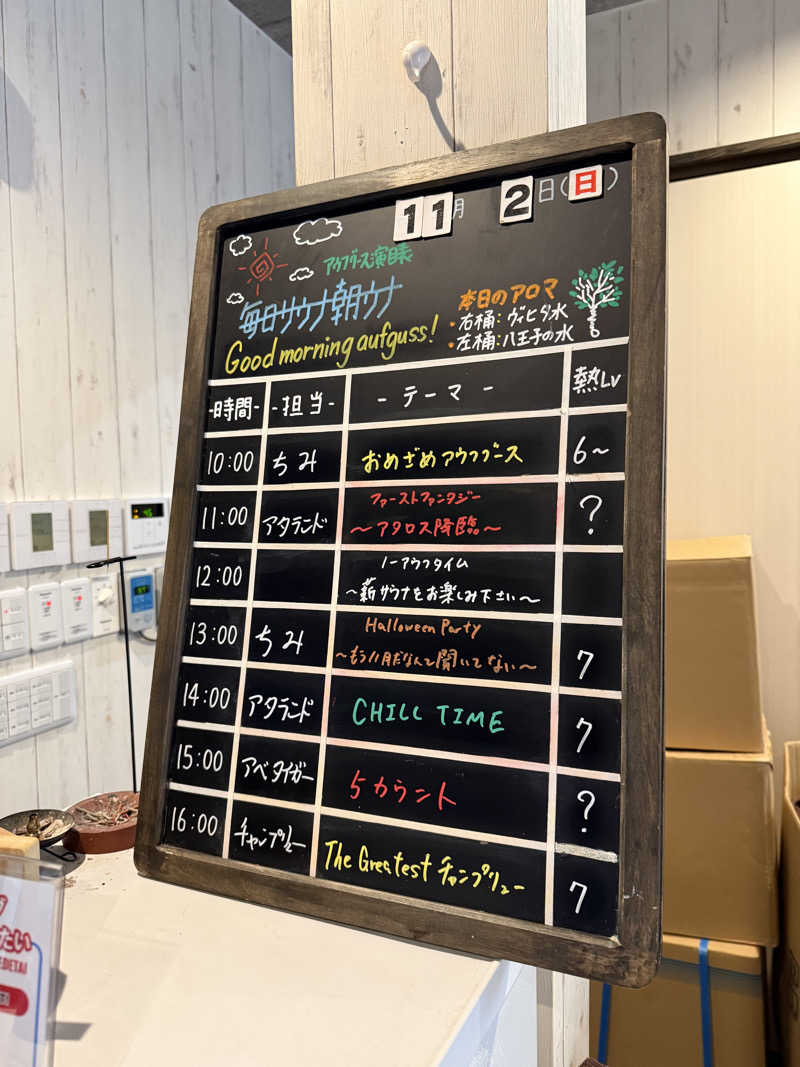 11月 2日(日)
アウフグース演目表
毎日サウナ朝ウナ
Good morning aufguss!
本日のアロマ
・右桶:ヴィヒタ水
・左桶:八王子の水
-時間- -担当- -テーマ- 熱Lv
10:00 ちみ おめざめアウフグース 6~
11:00 アタランド ファーストファンタジー ?
~アタロス降臨~
12:00 ノーアウフタイム
~薪サウナをお楽しみ下さい~
13:00 ちみ Halloween Party 7
~もう11月だなんて聞いてない~
14:00 アタランド CHILL TIME 7
15:00 アベタイガー 5カウント ?
16:00 チャンプリュー The Greatest チャンプリュー 7
たい